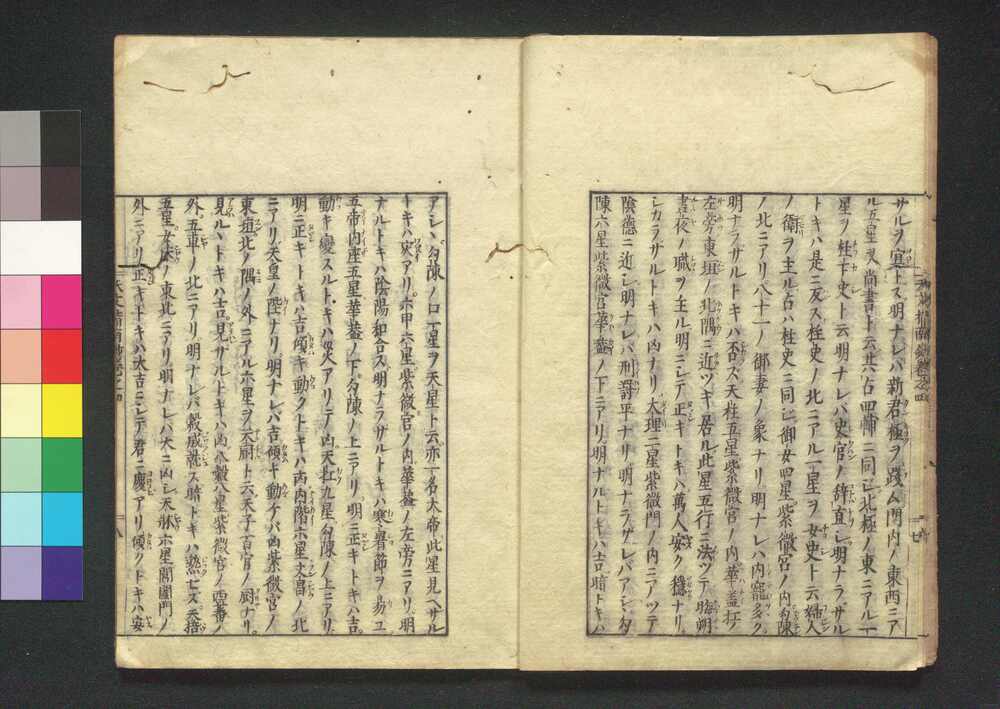 サルヲ寔トス明ナレバ新君極ヲ践ム門内ノ東西ニア
ル五星ヌ尚書ト云共占四輔ニ同じ北極ノ東ニアル一
星ヲ柱下史ト云明ナレバ史官ノ辞直シ明ナラザル
トキハ是ニ反ス柱史ノ北ニアル一星ヲ女史ト云婦人
ノ衛ヲ主ル占ハ柱史ニ同シ御女四星紫微宮ノ内勾陳
ノ北ニアリ八十一ノ御妻ノ象ナリ明ナレハ内寵多ク
明ナラザルトキハ否ズ天柱五星紫微宮ノ内華蓋杠ノ
左旁東垣ノ北隅ニ近ツキ居ル此星五行ニ法ツテ晦朔
晝夜ノ職ヲ主ル明ニシテ正キトキハ萬人安ク穏ナリ
シカラザルトキハ凶ナリ大理二星紫微門ノ内ニアツテ
陰德ニ近シ明ナレバ刑罸平ナリ明ナラザレバアシ勾
陳六星紫微宮華蓋ノ下ニアリ明ナルトキハ吉暗トキハ
アシヽ勾陳ノ口一星ヲ天皇ト云亦一名太帝此星見ヘサル
トキハ灾アリ六甲六星紫微宮ノ内華蓋ノ左旁ニアリ明
ナルトキハ陰陽和合ス明ナラザルトキハ寒暑節ヲ易ユ
五帝内座五星華蓋ノ下勾陳ノ上ニアリ明ニ正キトキハ吉
動キ變スルトキハ災アリテ凶天杠九星勾陳ノ上ニアリ
明ニ正キトキハ吉傾キ動クトキハ凶内階六星文昌ノ北
ニアリ天皇ノ陛ナリ明ナレバ吉傾キ動ケバ凶紫微宮ノ
東垣北ノ隅ノ外ニアル六星ヲ天厨ト云天子百官ノ厨ナリ
見ルヽトキハ吉見ザルトキハ凶八穀八星紫微宮ノ西蕃ノ
外五車ノ北ニアリ明ナレバ穀成就ス暗トキハ熟セズ天棓
五星女床ノ東北ニアリ明ナレバ大ニ凶シ天牀六星閶闔門ノ
外ニアリ正キトキハ大吉ニシテ君ニ慶アリ傾クトキハ安